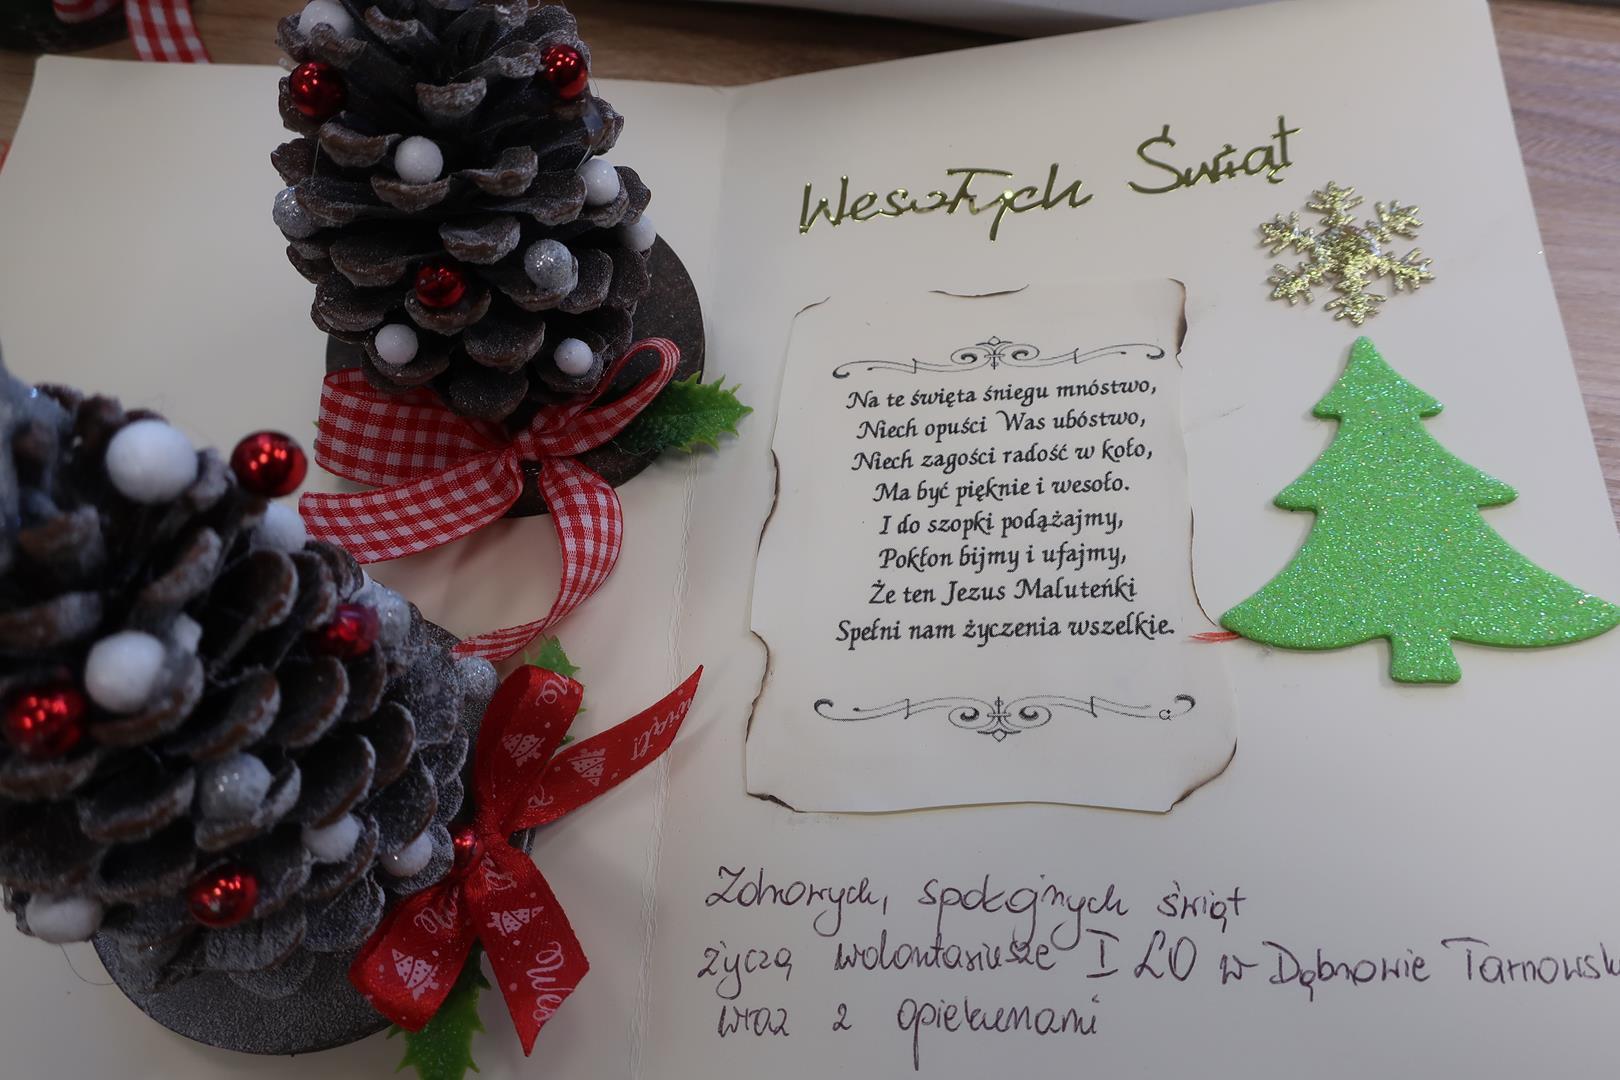 Wesołych Świąt
Na te święta śniegu mnóstwo,
Niech opuści Was ubóstwo,
Niech zagości radość w koło,
Ma być pięknie i wesoło.
I do szopki podążajmy,
Pokłon bijmy i ufajmy,
Że ten Jezus Maluteńki
Spełni nam życzenia wszelkie.
Zdrowych, spokojnych świąt
życzą wolontariusze I LO w Dąbrowie Tarnowsk
wraz z opiekunami